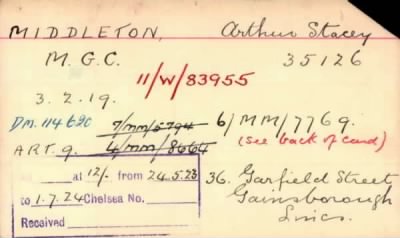 MIDDLETON, Arthur Stacey
M.G.C. 35126
11/W/83955
3.2.19.
DM.114620 7/MM/5794 6/MM/7769.
(see back of card)
ART.9. 4/MM/8664
at 12/- from 24.5.23
36. Garfield Street
to 1.7.24 Chelsea No.
Gainsborough
Received
Lincs.